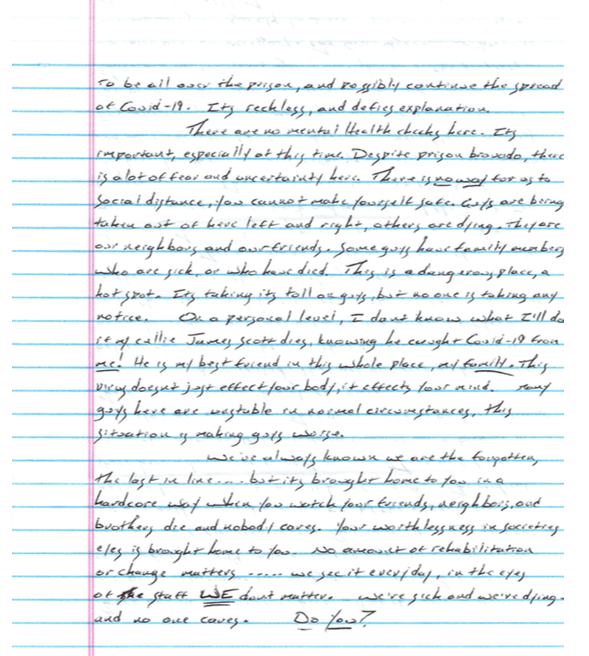 to be all over the prison, and possibly continue the spread
of Covid-19. Its reckless, and defies explanation.
There are no mental Health checks here. Its
important, especially at this time. Despite prison bravado, there
is a lot of fear and uncertainty here. There is no way for us to
social distance, you cannot make yourself safe. Guys are being
taken out of here left and right, others are dying. They are
our neighbors and our friends. Some guys have family members
who are sick, or who have died. This is a dangerous place, a
hot spot. Its taking its toll on guys, but no one is taking any
notice. On a personal level, I dont know what I'll do
if my cellie James Scott dies, knowing he caught Covid-19 from
me! He is my best friend in this whole place, my family. This
virus doesnt just effect your body, it effects your mind. Many
guys here are unstable in normal circumstances, this
situation is making guys worse.
We've always known we are the forgotten,
the last in line.... but its brought home to you in a
hardcore way when you watch your friends, neighbors, and
brothers die and nobody cares. Your worthlessness in societies
eyes is brought home to you. No amount of rehabilitation
or change matters ..... we see it everyday, in the eyes
of the staff WE dont matter. We're sick and we're dying.
and no one cares. Do You?